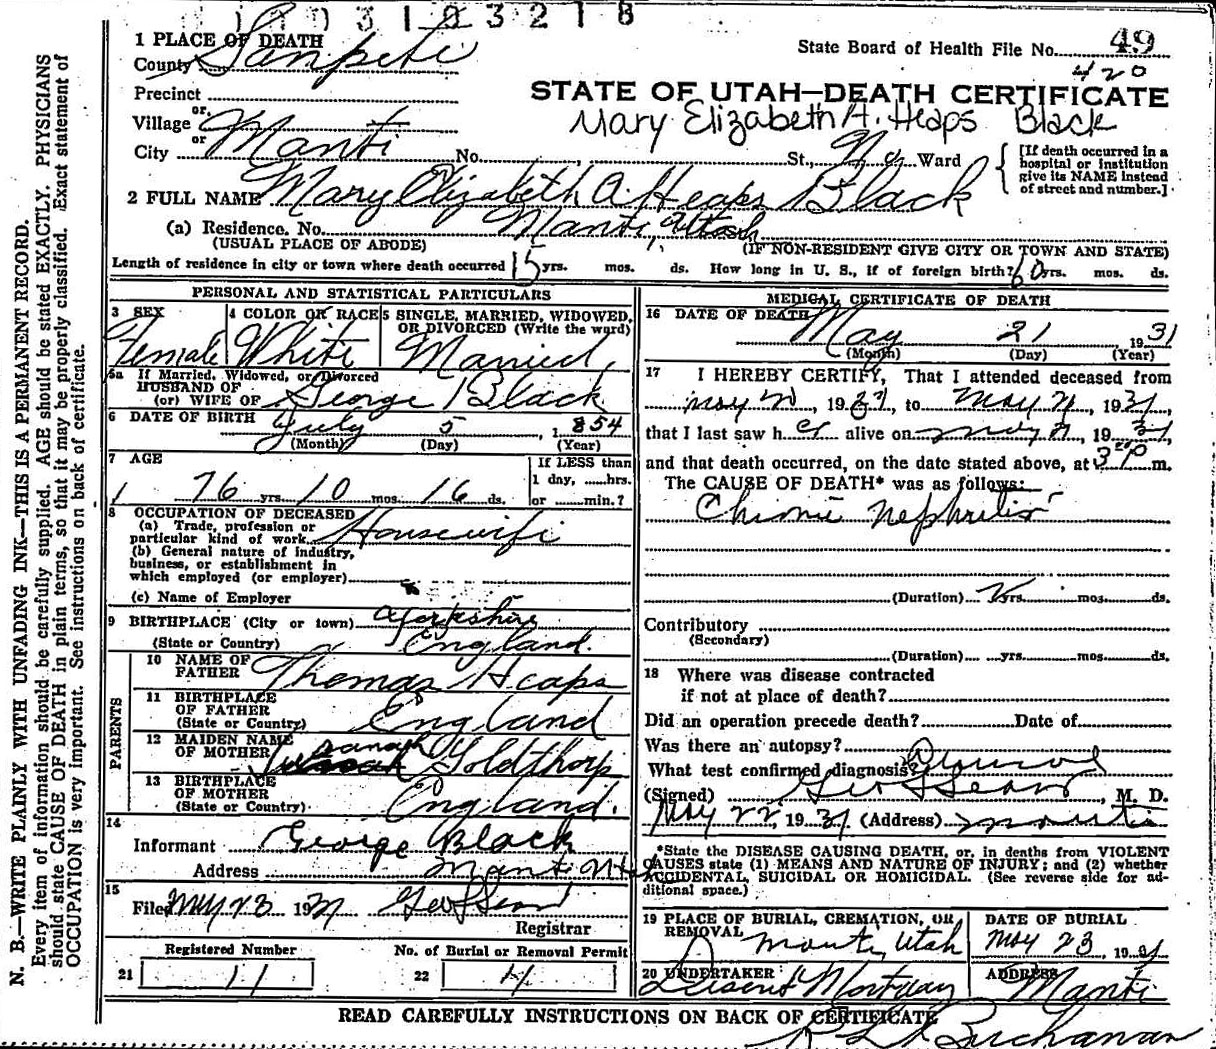 1 PLACE OF DEATH
County Sanpete
State Board of Health File No. 49
420
Precinct
STATE OF UTAH—DEATH CERTIFICATE
or
Village
Mary Elizabeth A. Heaps Black
or
City Manti No. St., Ward
[If death occurred in a hospital or institution give its NAME instead of street and number.]
2 FULL NAME Mary Elizabeth A. Heaps Black
(a) Residence. No. Manti, Utah
(USUAL PLACE OF ABODE) (IF NON-RESIDENT GIVE CITY OR TOWN AND STATE)
Length of residence in city or town where death occurred 15 yrs. mos. ds. How long in U. S., if of foreign birth? 60 yrs. mos. ds.
PERSONAL AND STATISTICAL PARTICULARS
3 SEX 4 COLOR OR RACE 5 SINGLE, MARRIED, WIDOWED, OR DIVORCED (Write the word)
Female White Married
5a If Married, Widowed, or Divorced
HUSBAND OF
(or) WIFE OF George Black
6 DATE OF BIRTH July 5 1854
(Month) (Day) (Year)
7 AGE If LESS than
1 day, ......hrs.
76 yrs. 10 mos. 16 ds. or ......min.?
8 OCCUPATION OF DECEASED
(a) Trade, profession or
particular kind of work Housewife
(b) General nature of industry,
business, or establishment in
which employed (or employer)
(c) Name of Employer
9 BIRTHPLACE (City or town) Yorkshire
(State or Country) England.
PARENTS
10 NAME OF FATHER Thomas Heaps
11 BIRTHPLACE OF FATHER (State or Country) England
12 MAIDEN NAME OF MOTHER Goldthorp
13 BIRTHPLACE OF MOTHER (State or Country) England.
14
Informant George Black
Address Manti Ut
15
Filed May 23 1931 Geo L Sears
Registrar
Registered Number No. of Burial or Removal Permit
21 11 22 11
MEDICAL CERTIFICATE OF DEATH
16 DATE OF DEATH May 21 1931
(Month) (Day) (Year)
17 I HEREBY CERTIFY, That I attended deceased from
May 20, 1931, to May 21, 1931,
that I last saw her alive on May 21, 1931,
and that death occurred, on the date stated above, at 3 p m.
The CAUSE OF DEATH* was as follows:
Chronic Nephritis
(Duration) yrs. mos. ds.
Contributory
(Secondary)
(Duration) yrs. mos. ds.
18 Where was disease contracted
if not at place of death?
Did an operation precede death? Date of
Was there an autopsy?
What test confirmed diagnosis?
(Signed) Geo L Sears, M. D.
May 22, 1931 (Address) Manti
*State the DISEASE CAUSING DEATH, or, in deaths from VIOLENT
CAUSES state (1) MEANS AND NATURE OF INJURY; and (2) whether
ACCIDENTAL, SUICIDAL OR HOMICIDAL. (See reverse side for additional space.)
19 PLACE OF BURIAL, CREMATION, OR REMOVAL DATE OF BURIAL
Manti, Utah May 23, 1931
20 UNDERTAKER ADDRESS
Mortuary Manti
READ CAREFULLY INSTRUCTIONS ON BACK OF CERTIFICATE
Buchanan
N. B.—WRITE PLAINLY WITH UNFADING INK—THIS IS A PERMANENT RECORD.
Every item of information should be carefully supplied. AGE should be stated EXACTLY. PHYSICIANS
should state CAUSE OF DEATH in plain terms, so that it may be properly classified. Exact statement of
OCCUPATION is very important. See instructions on back of certificate.